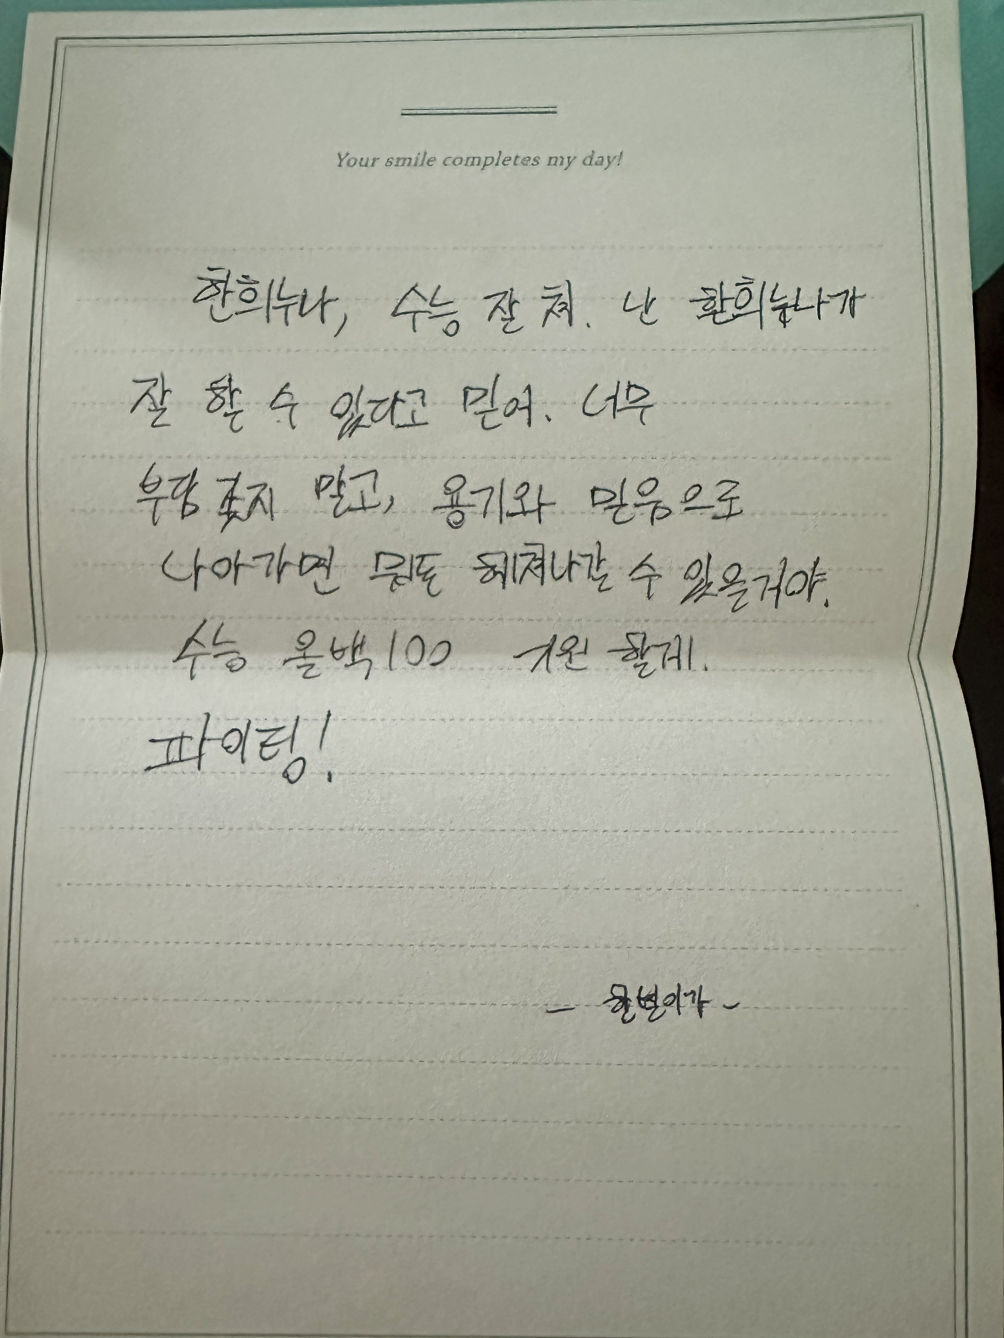 Your smile completes my day!
한희누나, 수능 잘 쳐. 난 환희누나가
잘 할 수 있다고 믿어. 너무
부담 갖지 말고, 용기와 믿음으로
나아가면 뭐든 헤쳐나갈 수 있을거야.
수능 올백 100 기원 할게.
파이팅!